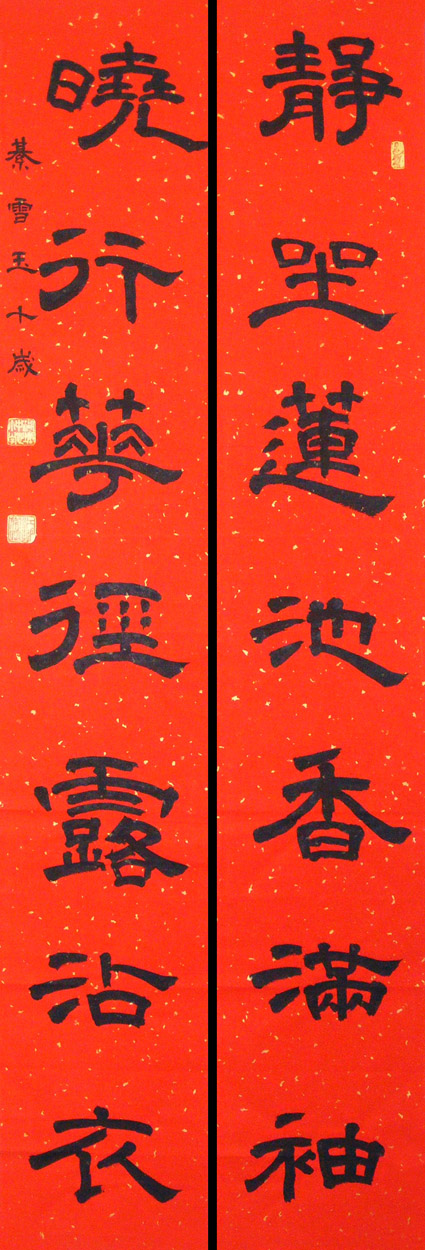 靜坐蓮池香滿袖
曉行華徑露沾衣
綦雪玉十歲